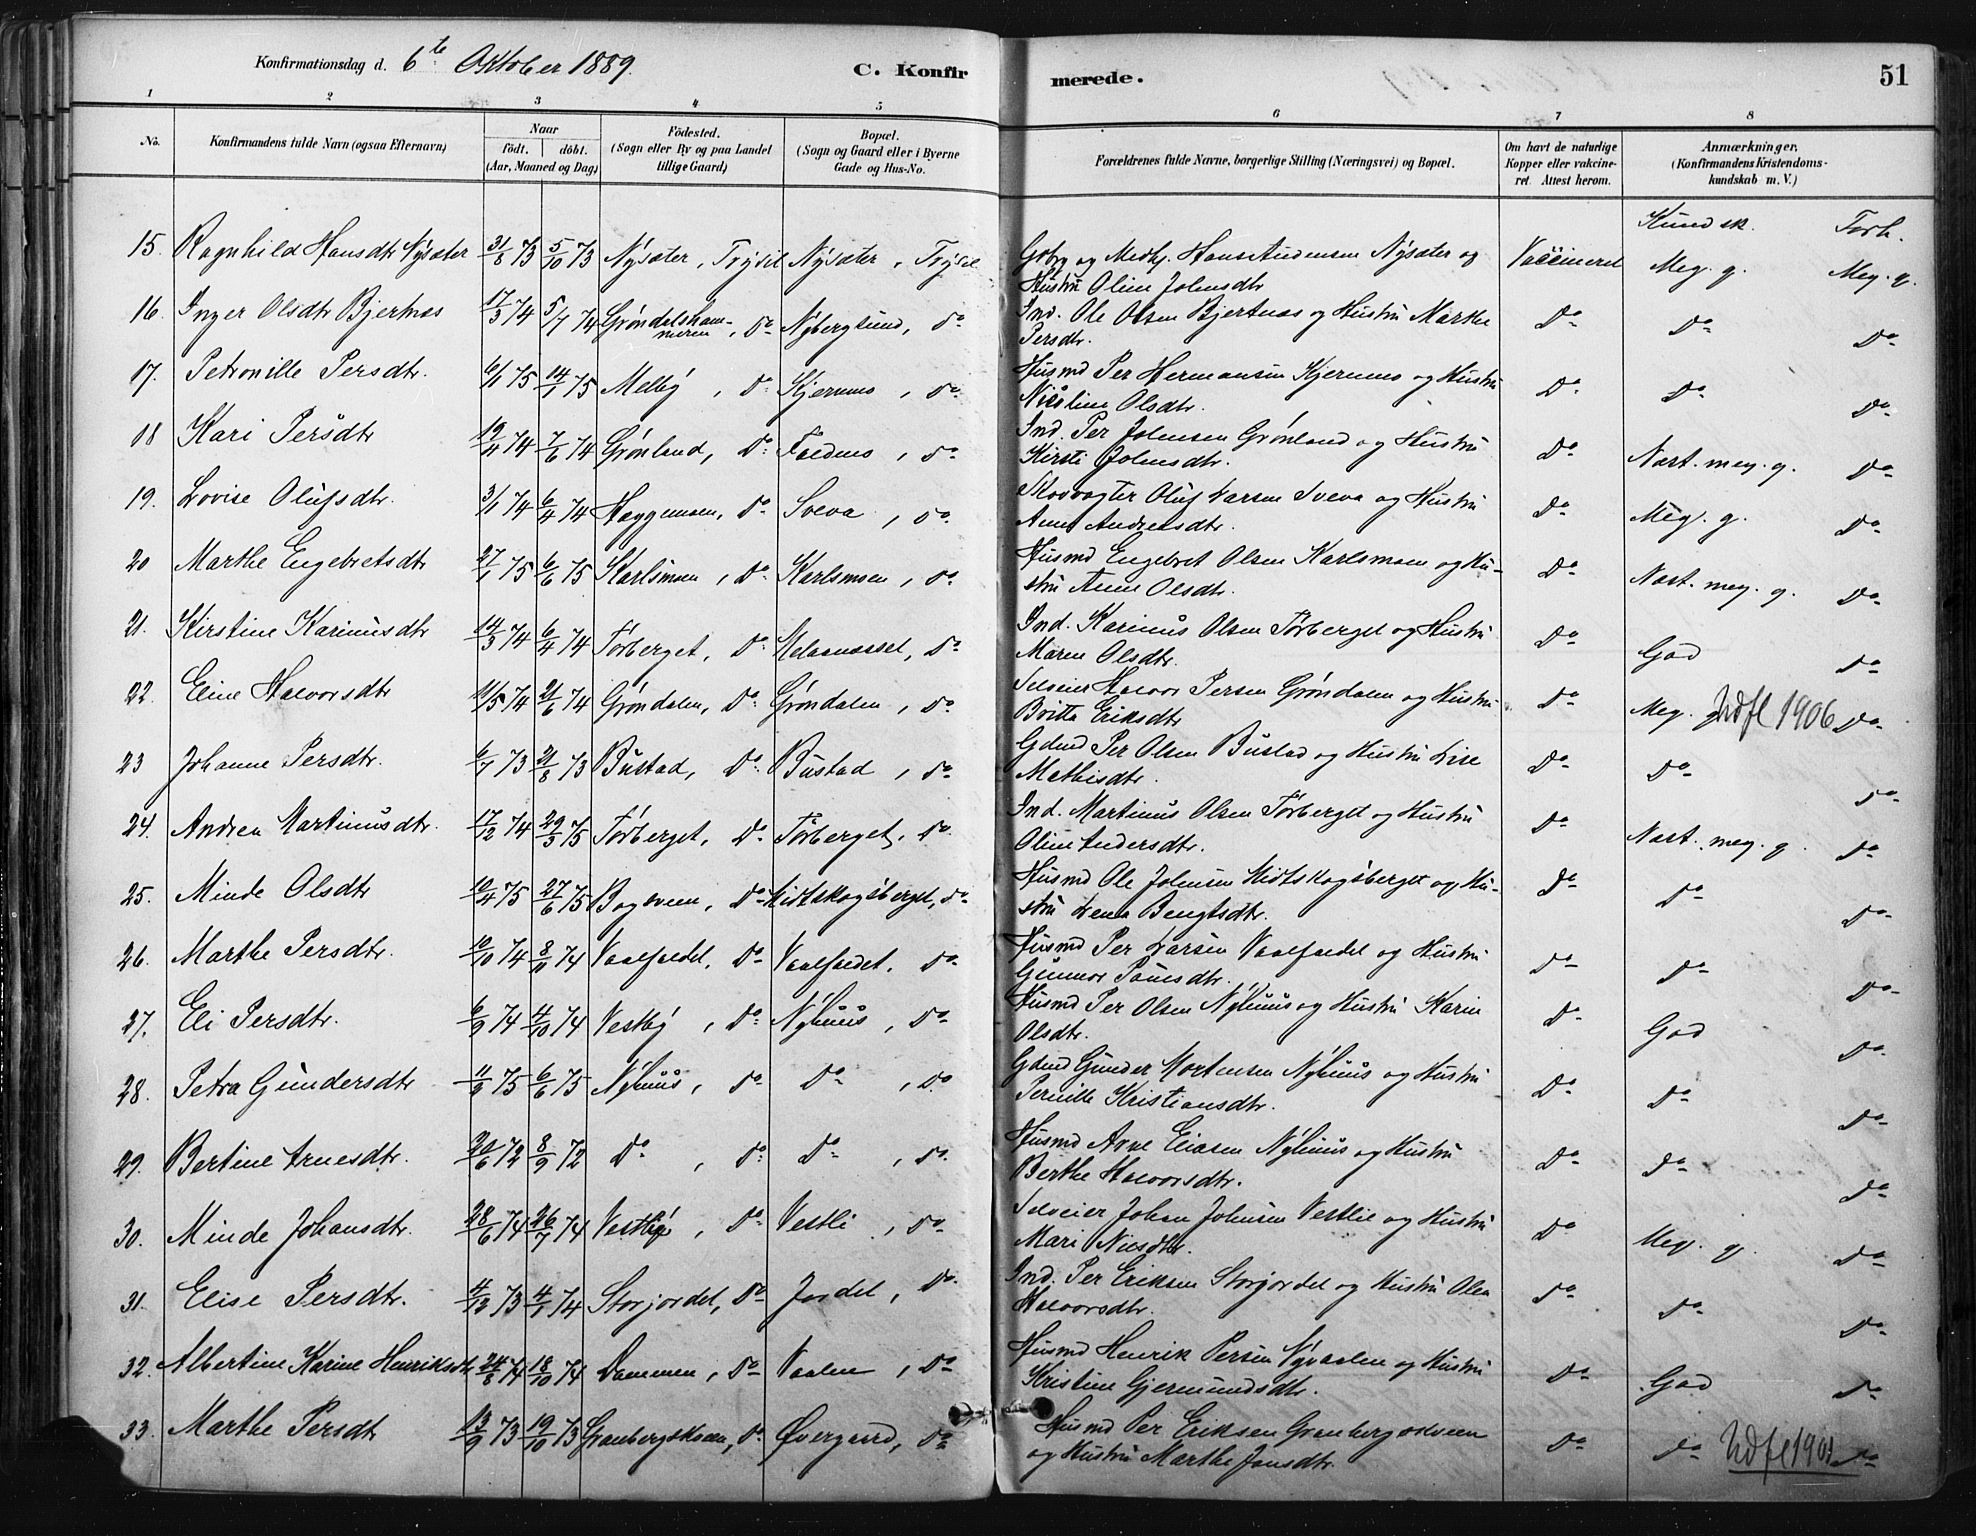 Konfirmationsdag d. 6te Oktober 1889. C. Konfirmerede. 51
1 2 3 4 5 6 7 8
No. Konfirmandens fulde Navn (ogsaa Efternavn) Naar födt. döbt. (Aar, Maaned og Dag) Födested. (Sogn eller By og paa Landet tillige Gaard) Bopæl. (Sogn og Gaard eller i Byerne Gade og Hus-No. Forældrenes fulde Navne, borgerlige Stilling (Næringsvei) og Bopæl. Om havt de naturlige Kopper eller vakcineret. Attest herom. Anmærkninger, (Konfirmandens Kristendomskundskab m. V.)
Kundsk. Forh.
15. Ragnhild Hansdtr Nysæter 31/8 73 5/10 73 Nysæter, Trysil Nysæter, Trysil Gbrg og Medhj. Hans Andersen Nysæter og Hustru Oline Johnsdtr Vaccineret Meg. g. Meg. g.
16. Inger Olsdtr Bjertnæs 17/3 74 5/7 74 Gröndalshammeren, Do Nybergsund, Do Ind. Ole Olsen Bjertnæs og Hustru Marthe Persdtr. Do Do Do
17. Petronille Persdtr. 6/1 75 14/1 75 Melby, Do Kjernmo, Do Husmd Per Hermansen Kjernmo og Hustru Nicoline Olsdtr. Do Do Do
18 Kari Persdtr 19/4 74 7/6 74 Grönland, Do Faldmo, Do Ind. Per Johnsen Grönland og Hustru Kirsti Johnsdtr. Do Næst. meg. g. Do
19. Lovise Olufsdtr. 3/1 74 6/4 74 Haggemoen, Do Sveva, Do Skovvogter Oluf Larsen Sveva og Hustru Anne Andreasdtr. Do Meg. g. Do
20 Marthe Engebretsdtr 27/1 75 6/6 75 Karlsmoen, Do Karlsmoen, Do Husmd Engebret Olsen Karlsmoen og Hustru Anne Olsdtr. Do Næst. meg. g. Do
21. Kirstine Karinusdtr 14/3 74 6/4 74 Törberget, Do Do Ind. Karinus Olsen Törberget og Hustru Maren Olsdtr. Do God Do
22. Eline Halvorsdtr 11/5 74 21/6 74 Gröndalen, Do Gröndalen, Do Selveier Halvor Persen Gröndalen og Hustru Britta Eriksdtr Do Meg. g Udfl 1906 Do
23 Johanne Persdtr. 6/7 73 21/8 73 Bustad, Do Bustad, Do Gdmd Per Olsen Bustad og Hustru Lise Mathisdtr. Do Do Do
24. Andrea Martinusdtr. 17/12 74 29/3 75 Törberget, Do Törberget, Do Ind. Martinus Olsen Törberget og Hustru Oline Andersdtr. Do Næst. meg. g. Do
25. Minde Olsdtr 10/4 75 27/6 75 Bogsveen, Do Midtskogsberget, Do Husmd Ole Johnsen Midtskogsberget og Hustru Lena Bengtsdtr. Do Do Do
26. Marthe Persdtr. 10/10 74 8/11 74 Vaalfaldet, Do Vaalfaldet. Do Husmd Per Larsen Vaalfaldet og Hustru Gunnor Paulsdtr. Do Do Do
27. Eli Persdtr. 6/9 74 4/10 74 Vestby, Do Nyhuus, Do Husmd Per Olsen Nyhuus og Hustru Karin Olsdtr. Do God Do
28. Petra Gundersdtr 11/2 75 6/6 75 Nyhuus, Do Do, Do Gdmd Gunder Mortensen Nyhuus og Hustru Pernille Kristiansdtr. Do Do Do
29. Bertine Arnesdtr. 30/6 72 8/9 72 Do, Do Do, Do Husmd Arne Eliasen Nyhuus og Hustru Berthe Halvorsdtr. Do Do Do
30. Minde Johansdtr. 28/6 74 26/7 74 Vestby, Do Vestli, Do Selveier Johan Johnsen Vestlie og Hustru Mari Nilsdtr. Do Meg. g. Do
31. Elise Persdtr. 11/12 73 4/1 74 Storjordet, Do Jordet, Do Ind. Per Eriksen Storjordet og Hustru Olea Halvorsdtr. Do Do Do
32. Albertine Karine Henriksdtr 24/8 74 18/10 74 Dammen, Do Vaalen, Do Husmd Henrik Persen Nyvaalen og Hustru Kristine Gjermundsdtr. Do God Do
33. Marthe Persdtr 13/9 73 19/10 73 Granbergskoien, Do Övergaard, Do Husmd Per Eriksen Granbergsveen og Hustru Marthe Jonsdtr. Do Do Udfl 1901 Do